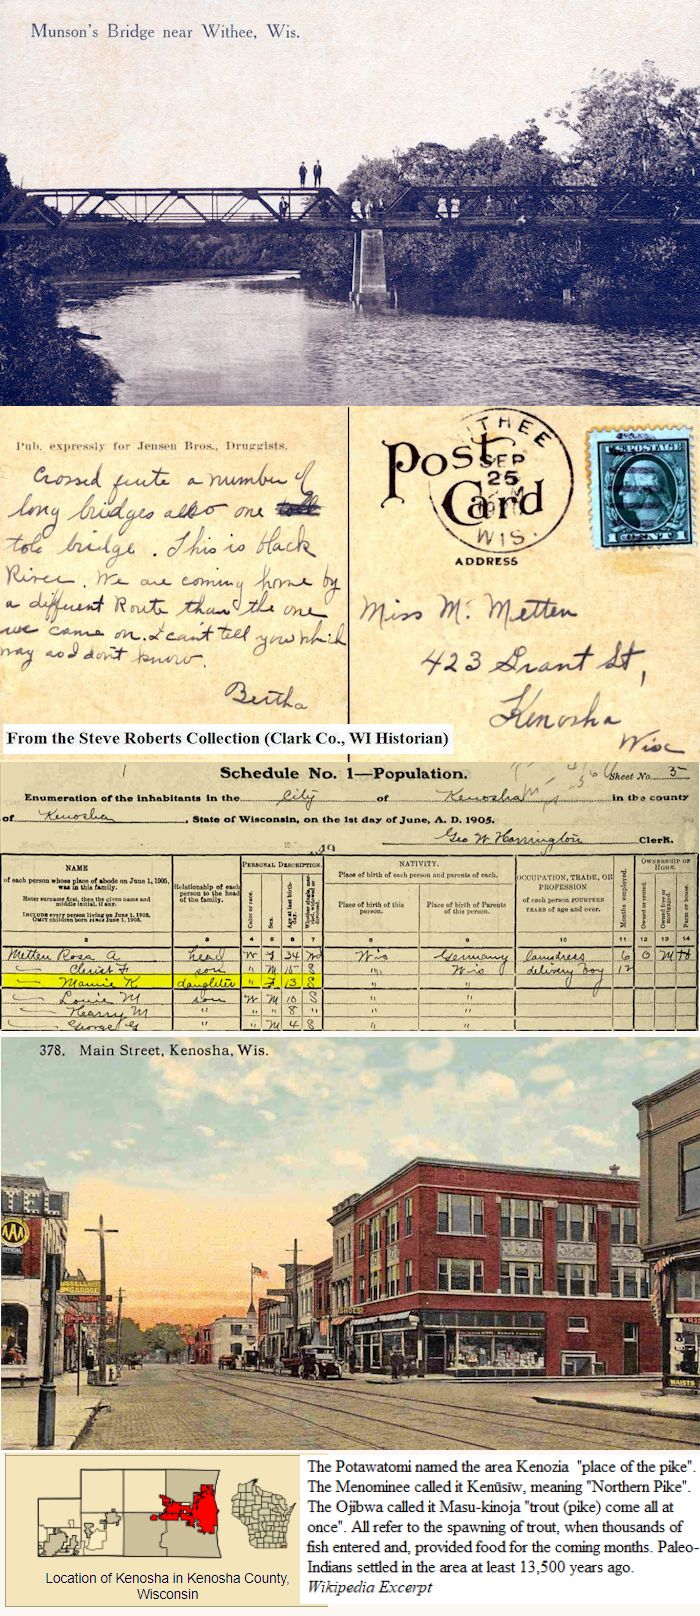 Munson's Bridge near Withee, Wis.
Pub. expressly for Jensen Bros., Druggists.
Crossed quite a number of
long bridges also one
tole bridge. This is black
River. We are coming home by
a different Route than the one
we came on. I can't tell you which
way as I don't know.
Bertha
From the Steve Roberts Collection (Clark Co., WI Historian)
Post Card
WITHEE
SEP
25
WIS.
U.S. POSTAGE
1 CENT 1
ADDRESS
Miss M. Metten
423 Grant St,
Kenosha
Wisc
Schedule No. 1—Population.
Sheet No. 5
Enumeration of the inhabitants in the City of Kenosha in the county
of Kenosha, State of Wisconsin, on the 1st day of June, A. D. 1905.
Geo W Harrington Clerk.
NAME
of each person whose place of abode on June 1, 1905,
was in this family.
Enter surname first, then the given name and
middle initial, if any.
INCLUDE every person living on June 1, 1905.
OMIT children born since June 1, 1905.
Relationship of each
person to the head
of the family.
PERSONAL DESCRIPTION.
Color or race.
Sex.
Age at last birthday.
NATIVITY.
Place of birth of each person and parents of each.
Place of birth of this
person.
Place of birth of Parents
of this person.
OCCUPATION, TRADE, OR
PROFESSION
of each person FOURTEEN
YEARS of age and over.
Months employed.
OWNERSHIP OF
HOME.
Owned or rented.
Owned free or mortgaged.
Farm or house.
2 3 4 5 6 7 8 9 10 11 12 13 14
Metten Rosa A head W F 34 Wd Wis Germany laundress 6 O M H
Christ F son " M 15 S " Wis delivery boy 12
Mamie K daughter " F 13 S " "
Louie M son W M 10 S " "
Harry M " " " 8 " " "
George G " M 4 S " "
378. Main Street, Kenosha, Wis.
AAA
OFFICIAL
GARAGE
SHOES
WAISTS
Location of Kenosha in Kenosha County,
Wisconsin
The Potawatomi named the area Kenozia "place of the pike".
The Menominee called it Kenūsīw, meaning "Northern Pike".
The Ojibwa called it Masu-kinoja "trout (pike) come all at
once". All refer to the spawning of trout, when thousands of
fish entered and, provided food for the coming months. Paleo-
Indians settled in the area at least 13,500 years ago.
Wikipedia Excerpt